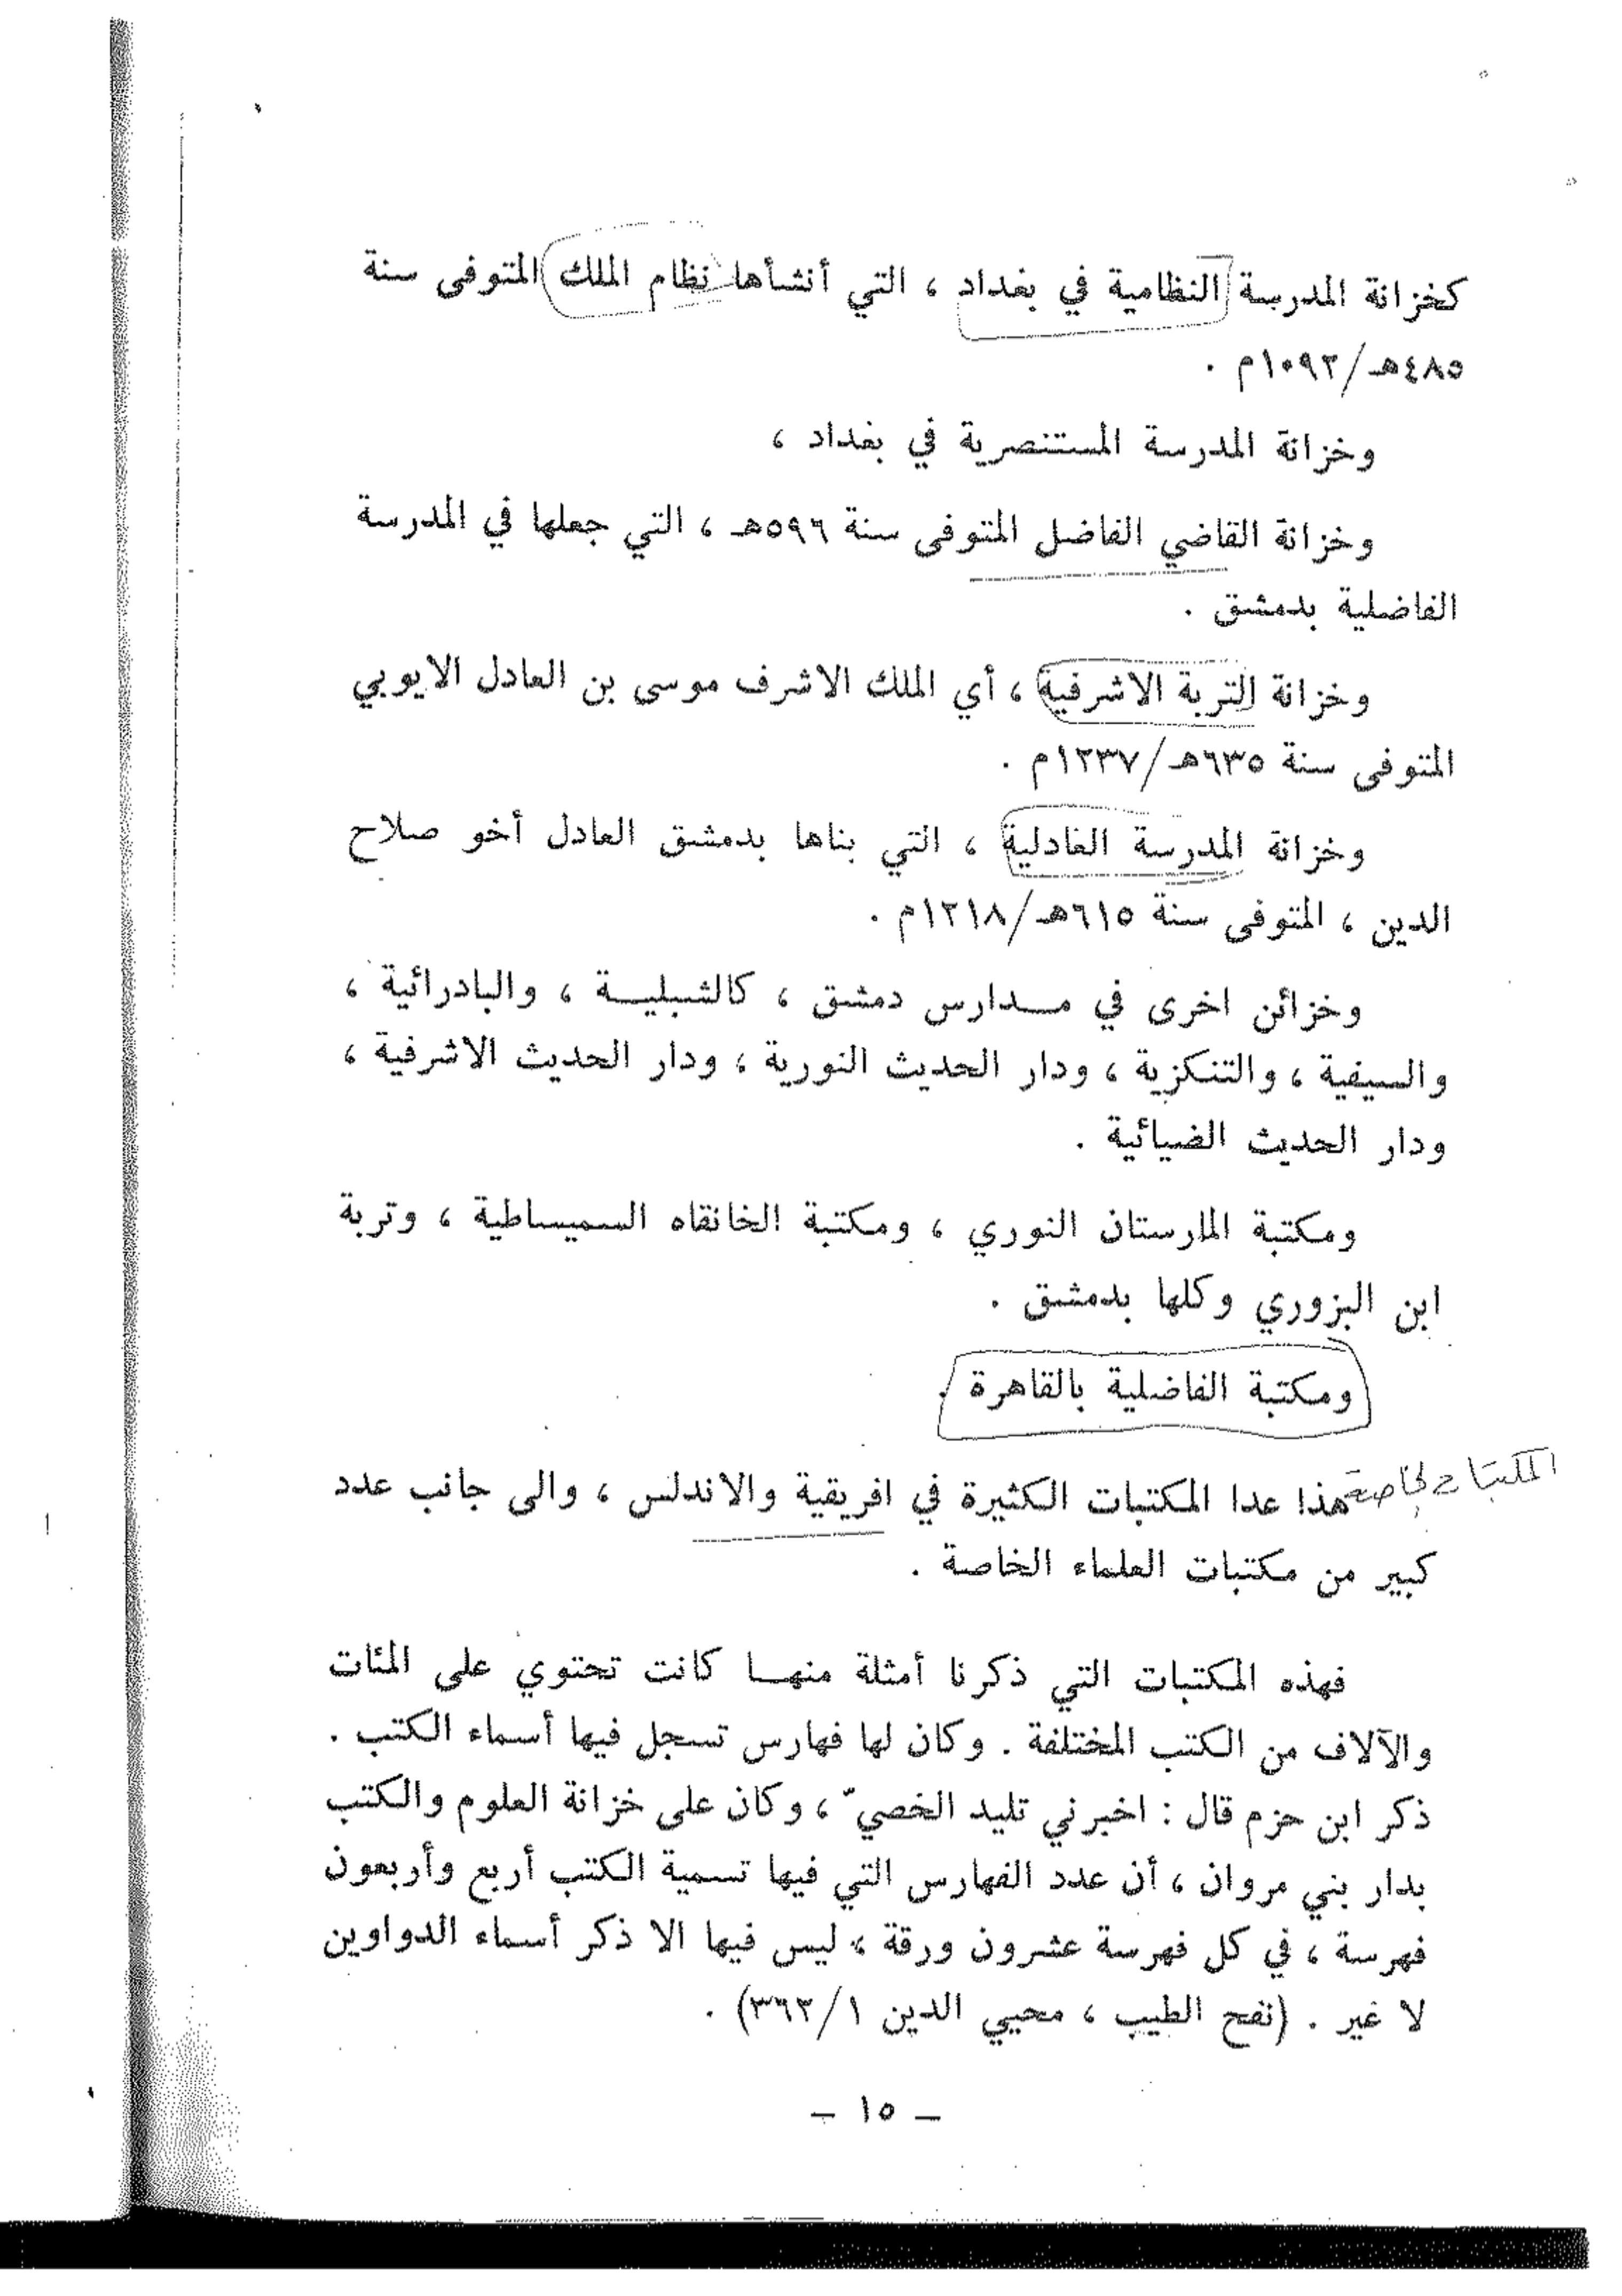 كخزانة المدرسة النظامية في بغداد ، التي أنشأها نظام الملك المتوفى سنة
٤٨٥هـ/١٠٩٢م .
وخزانة المدرسة المستنصرية في بغداد ،
وخزانة القاضي الفاضل المتوفى سنة ٥٩٦هـ ، التي جعلها في المدرسة
الفاضلية بدمشق .
وخزانة التربة الاشرفية ، أي الملك الاشرف موسى بن العادل الايوبي
المتوفى سنة ٦٣٥هـ/١٢٣٧م .
وخزانة المدرسة العادلية ، التي بناها بدمشق العادل أخو صلاح
الدين ، المتوفى سنة ٦١٥هـ/١٢١٨م .
وخزائن اخرى في مدارس دمشق ، كالشبلية ، والبادرائية ،
والسيفية ، والتنكزية ، ودار الحديث النورية ، ودار الحديث الاشرفية ،
ودار الحديث الضيائية .
ومكتبة المارستان النوري ، ومكتبة الخانقاه السميساطية ، وتربة
ابن البزوري وكلها بدمشق .
ومكتبة الفاضلية بالقاهرة .
المكتبات الخاصة
هذا عدا المكتبات الكثيرة في افريقية والاندلس ، والى جانب عدد
كبير من مكتبات العلماء الخاصة .
فهذه المكتبات التي ذكرنا أمثلة منها كانت تحتوي على المئات
والآلاف من الكتب المختلفة . وكان لها فهارس تسجل فيها أسماء الكتب .
ذكر ابن حزم قال : اخبرني تليد الخصيّ ، وكان على خزانة العلوم والكتب
بدار بني مروان ، أن عدد الفهارس التي فيها تسمية الكتب أربع وأربعون
فهرسة ، في كل فهرسة عشرون ورقة ، ليس فيها الا ذكر أسماء الدواوين
لا غير . (نفح الطيب ، محيي الدين ٣٦٢/١) .
– ١٥ –